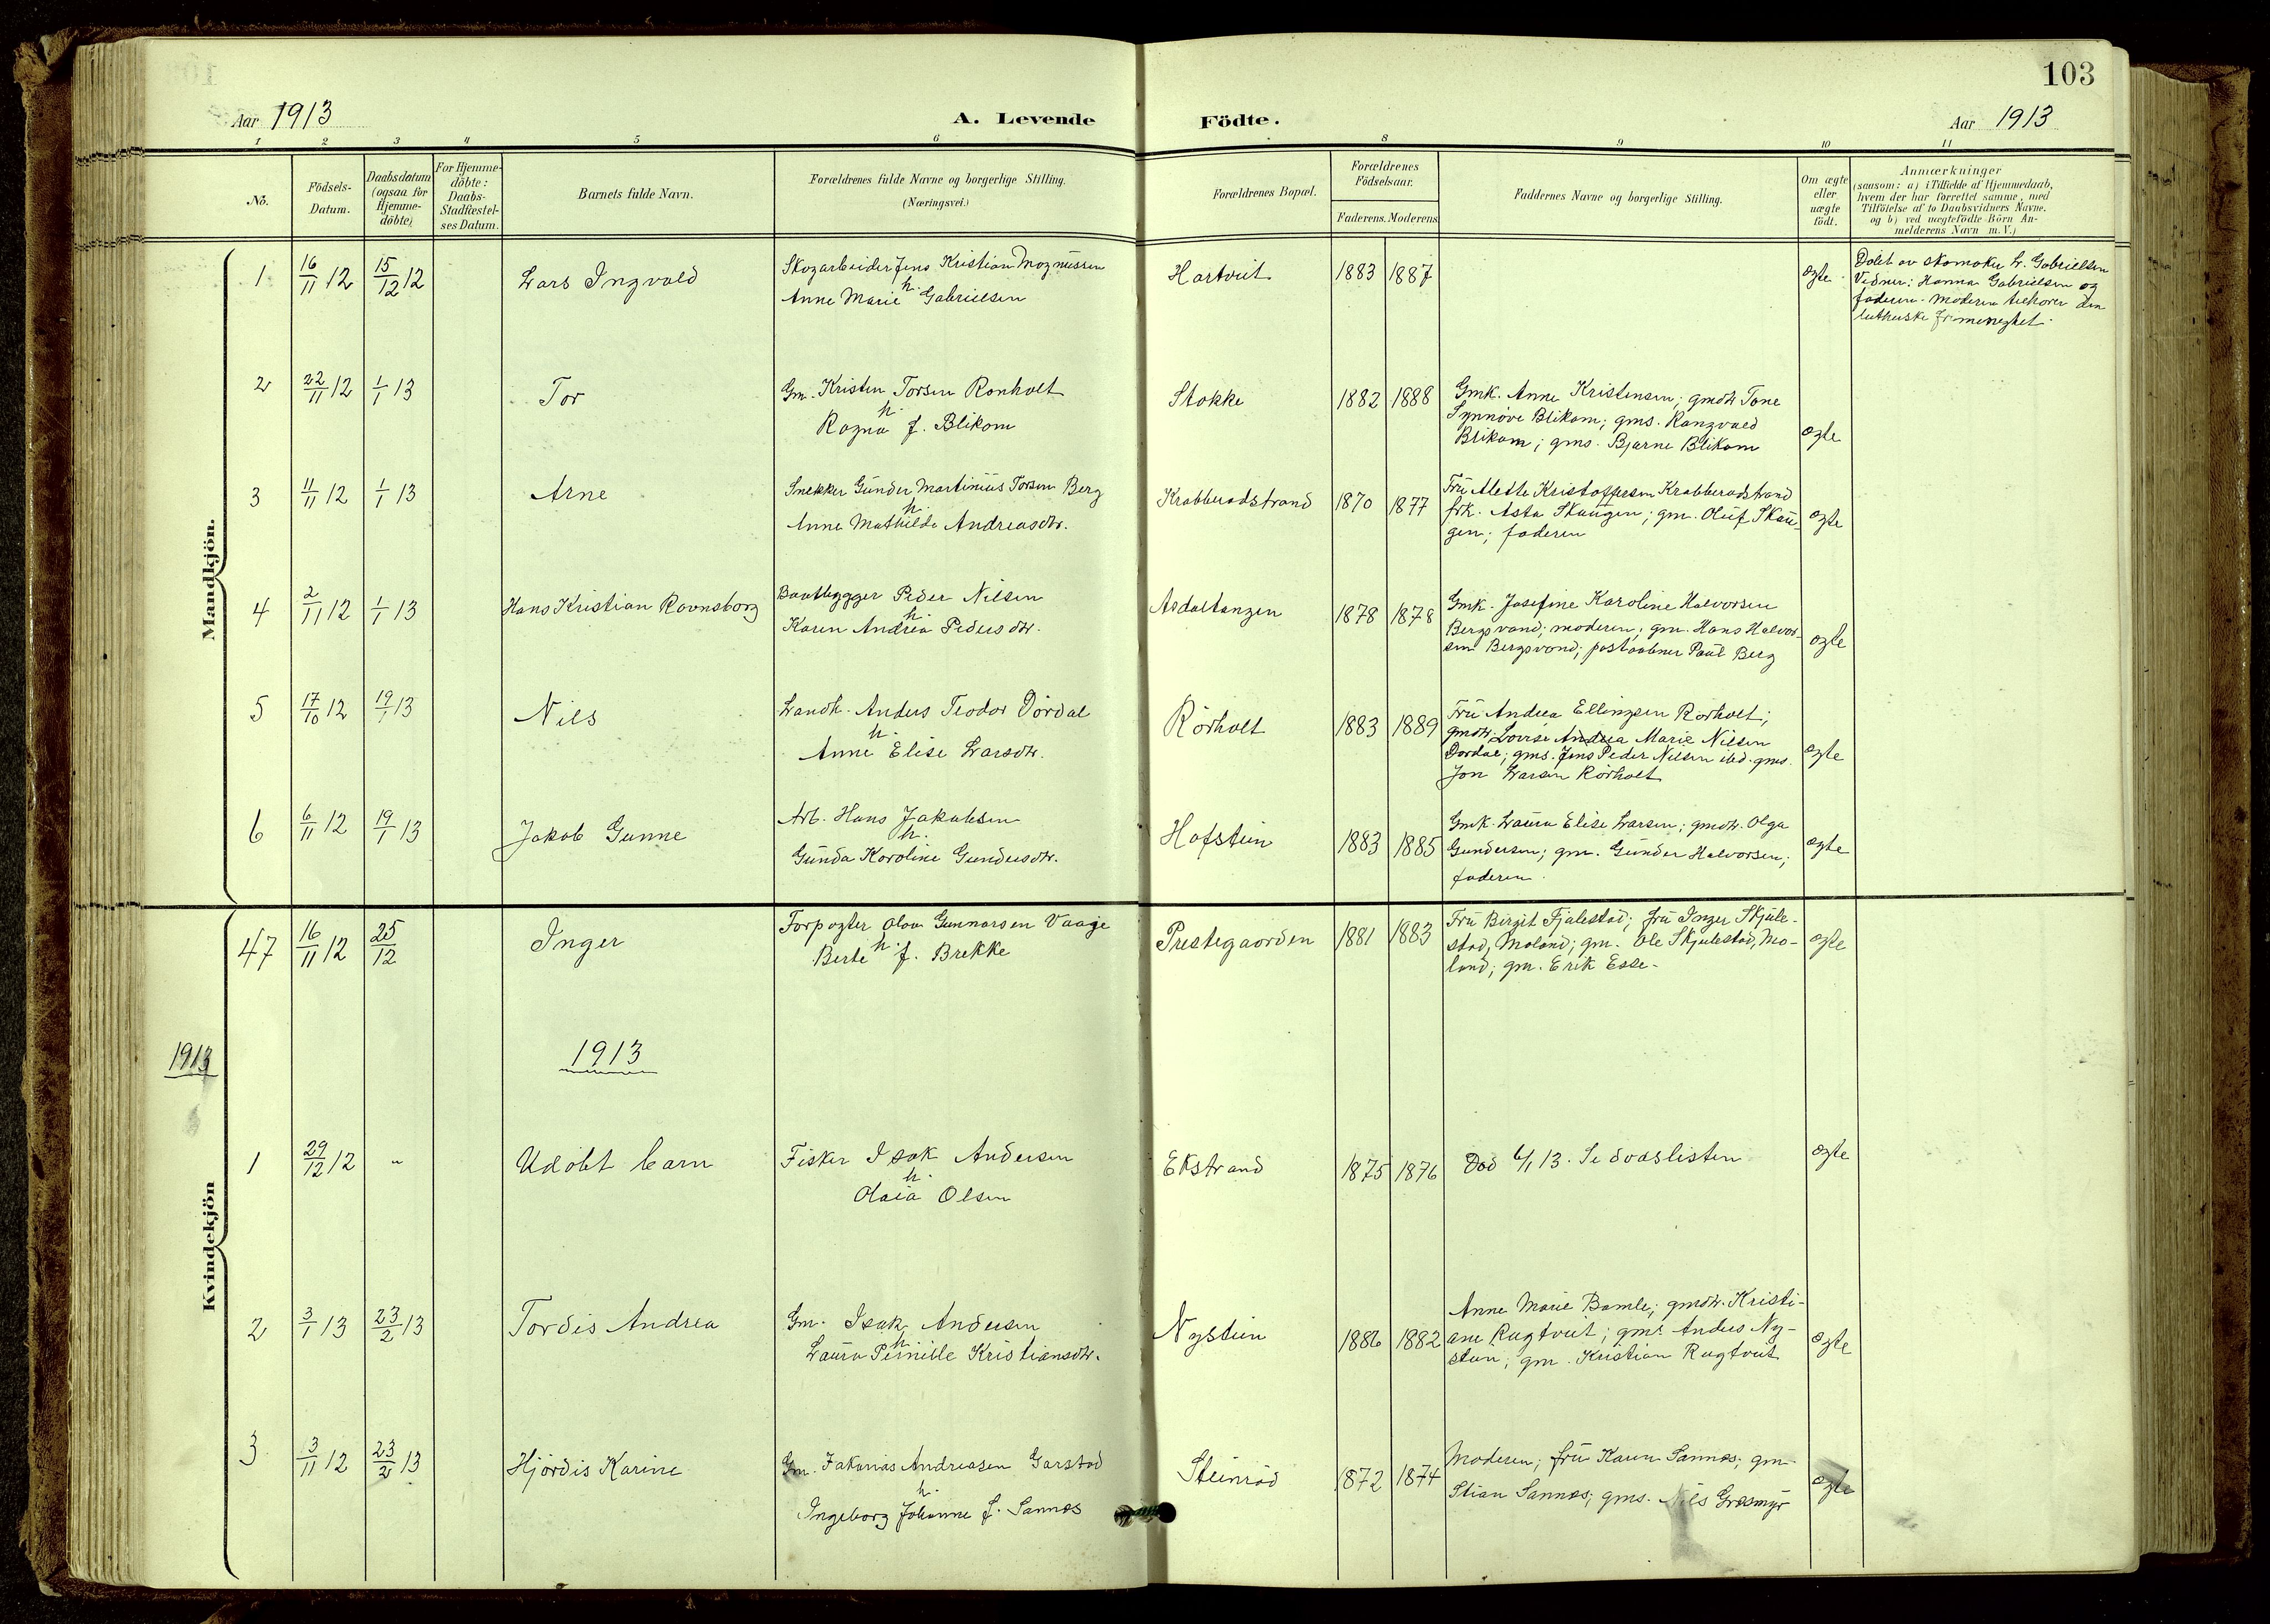 103
Aar 1913
A. Levende
Födte.
Aar 1913
1 2 3 4 5 6 8 9 10 11
No.
Födsels-
Datum.
Daabsdatum
(ogsaa for
Hjemme-
döbte).
For Hjemme-
döbte:
Daabs-
Stadfæstel-
ses Datum.
Barnets fulde Navn.
Forældrenes fulde Navne og borgerlige Stilling.
(Næringsvei.)
Forældrenes Bopæl.
Forældrenes
Födselsaar.
Faderens. Moderens.
Faddernes Navne og borgerlige Stilling.
Om ægte
eller
uægte
födt.
Anmærkninger
(saasom: a) i Tilfælde af Hjemmedaab,
hvem der har forrettet samme, med
Tilföielse af to Daabsvidners Navne.
og b) ved uægtefödte Börn An-
melderens Navn m. V.)
Mandkjön.
1
16/11 12
15/12 12
Lars Ingvald
Skogarbeider Jens Kristian Magnussen
h.
Anne Marie Gabrielsen
Hartveit
1883 1887
ægte
Døbt av skomaker L. Gabrielsen
Vidner: Hanna Gabrielsen og
faderen - moderen tilhører den
lutherske frimenighet.
2
22/11 12
1/1 13
Tor
Gm. Kristen Torsen Rønholt
h.
Ragna f. Blikom
Stokke
1882 1888
Gmk. Anne Kristensen; gmdtr Tone
Synnøve Blikom; gms. Rangvald
Blikom; gms. Bjarne Blikom
ægte
3
11/11 12
1/1 13
Arne
Snekker Gunder Martinius Torsen Berg
h.
Anne Mathilde Andreasdtr.
Krabberødstrand
1870 1877
Fru Alette Kristoffersen Krabberødstrand
frk. Asta Skaugen; gm. Oluf Skau-
gen; faderen
ægte
4
2/11 12
1/1 13
Hans Kristian Ravnsborg
Baatbygger Peder Nilsen
h.
Karen Andrea Pedersdtr.
Asdaltangen
1878 1878
Gmk. Josefine Karoline Halvorsen
Bergsvand; moderen; gm. Hans Halvor-
sen Bergsvand; postaabner Paul Berg
ægte
5
17/10 12
19/1 13
Nils
Landh. Anders Teodor Dørdal
h.
Anne Elise Larsdtr.
Rörholt
1883 1889
Fru Andrea Ellingsen Rørholt;
gmdtr. Lovise Andrea Marie Nilsen
Dørdal; gms. Jens Peder Nilsen ibd. gms.
Jon Larsen Rörholt
ægte
6
6/11 12
19/1 13
Jakob Gunne
Arb. Hans Jakobsen
h.
Gunda Karoline Gundersdtr.
Hafstein
1883 1885
Gmk. Laura Elise Larsen; gmdtr. Olga
Gundersen; gm. Gunder Halvorsen;
faderen.
ægte
Kvindekjön
47
16/11 12
25/12
Inger
Forpagter Olav Gunnarsen Vaage
h.
Berte f. Brekke
Prestegaarden
1881 1883
Fru Birgit Fjalestad; fru Inger Skjule-
stad, Moland; gm. Ole Skjulestad, Mo-
land; gm. Erik Esse-
ægte
1913
1913
1
29/12 12
"
Udøbt barn
Fisker Isak Andersen
h.
Olaia Olsen
Ekstrand
1875 1876
Død 6/1 13. Se dødslisten
ægte
2
3/1 13
23/2 13
Tordis Andrea
Gm. Isak Andersen
h.
Laura Pernille Kristiansdtr.
Nystein
1886 1882
Anne Marie Bamle; gmdtr. Kristi-
ane Rugtveit; gms. Anders Ny-
stein; gm. Kristian Rugtveit
ægte
3
3/11 12
23/2 13
Hjørdis Karine
Gm. Zakarias Andreasen Garstad
h.
Ingeborg Johanne f. Sannes
Steinrød
1872 1874
Moderen; fru Karen Sannes; gm
Stian Sannes; gms. Nils Græsmyr
ægte